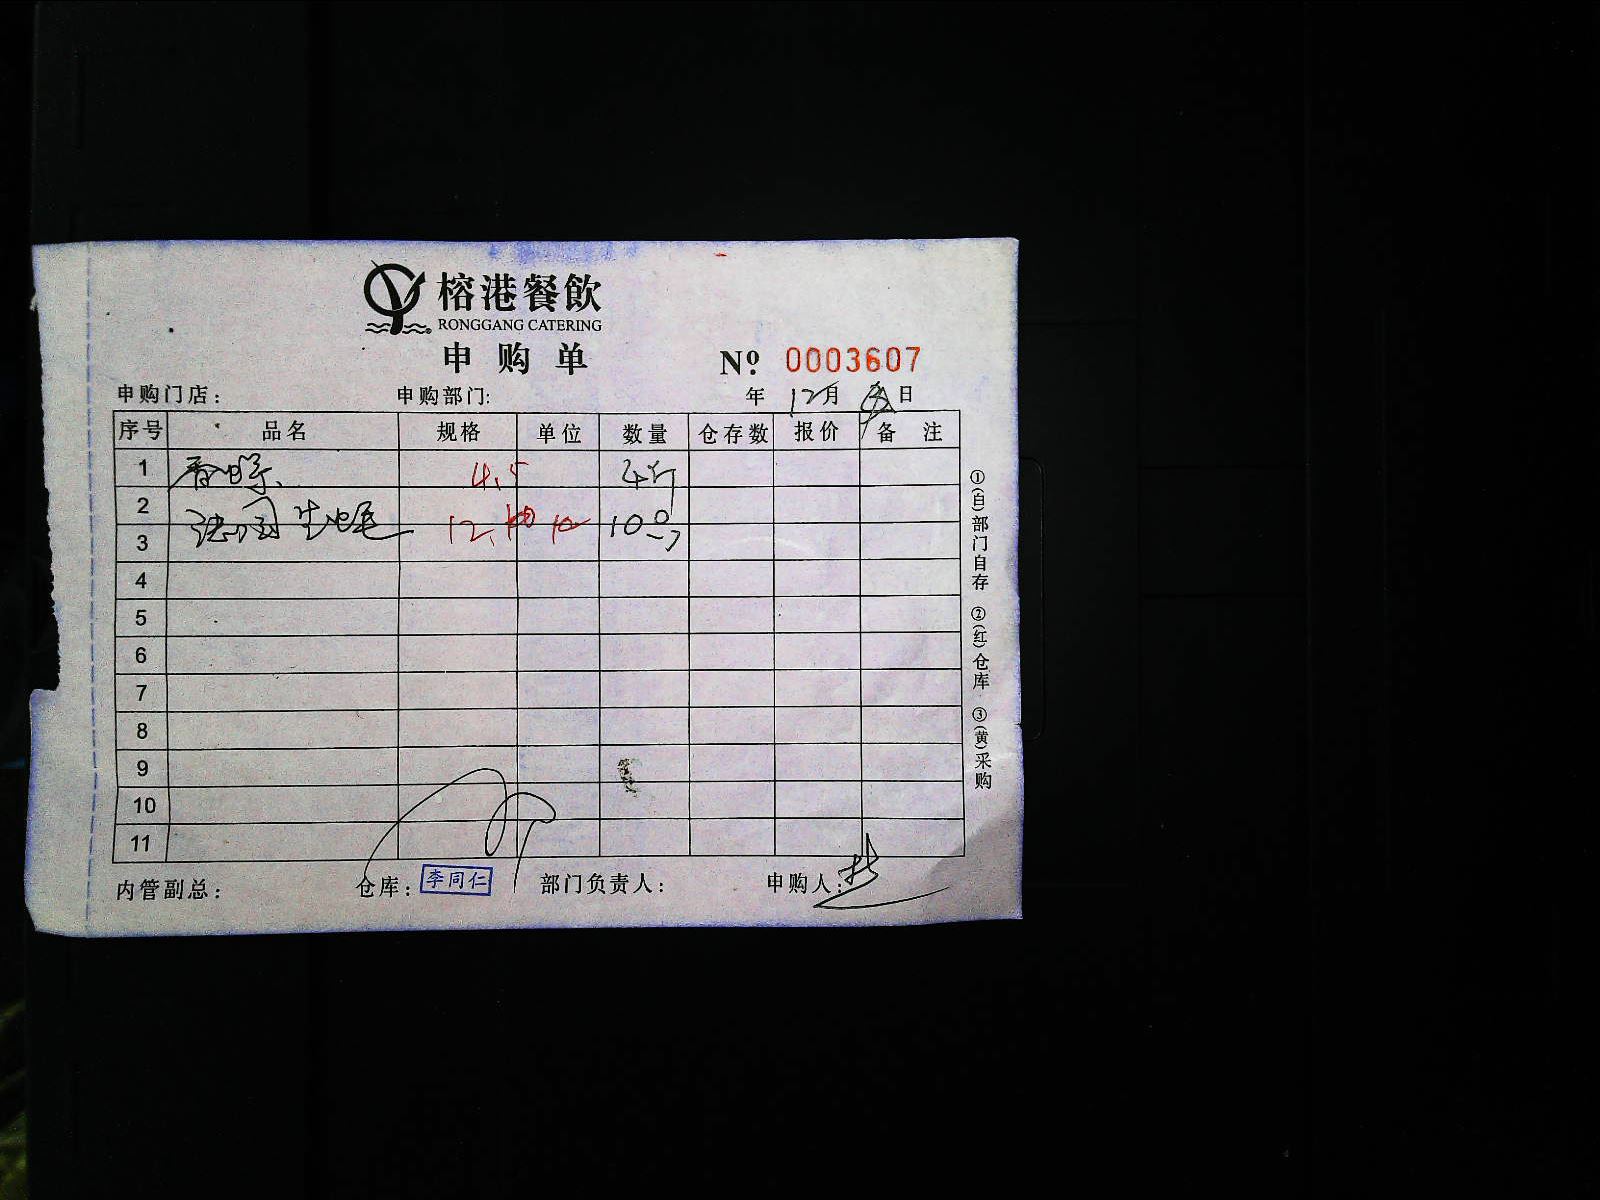 榕港餐飲
RONGGANG CATERING
申购单
Nº 0003607
申购门店: 申购部门: 年 12月 日
序号 品名 规格 单位 数量 仓存数 报价 备注
1 香螺 4.5 4斤
2 法国生蚝 12. 10只
3
4
5
6
7
8
9
10
11
内管副总: 仓库: 李同仁 部门负责人: 申购人:
①(白)部门自存 ②(红)仓库 ③(黄)采购